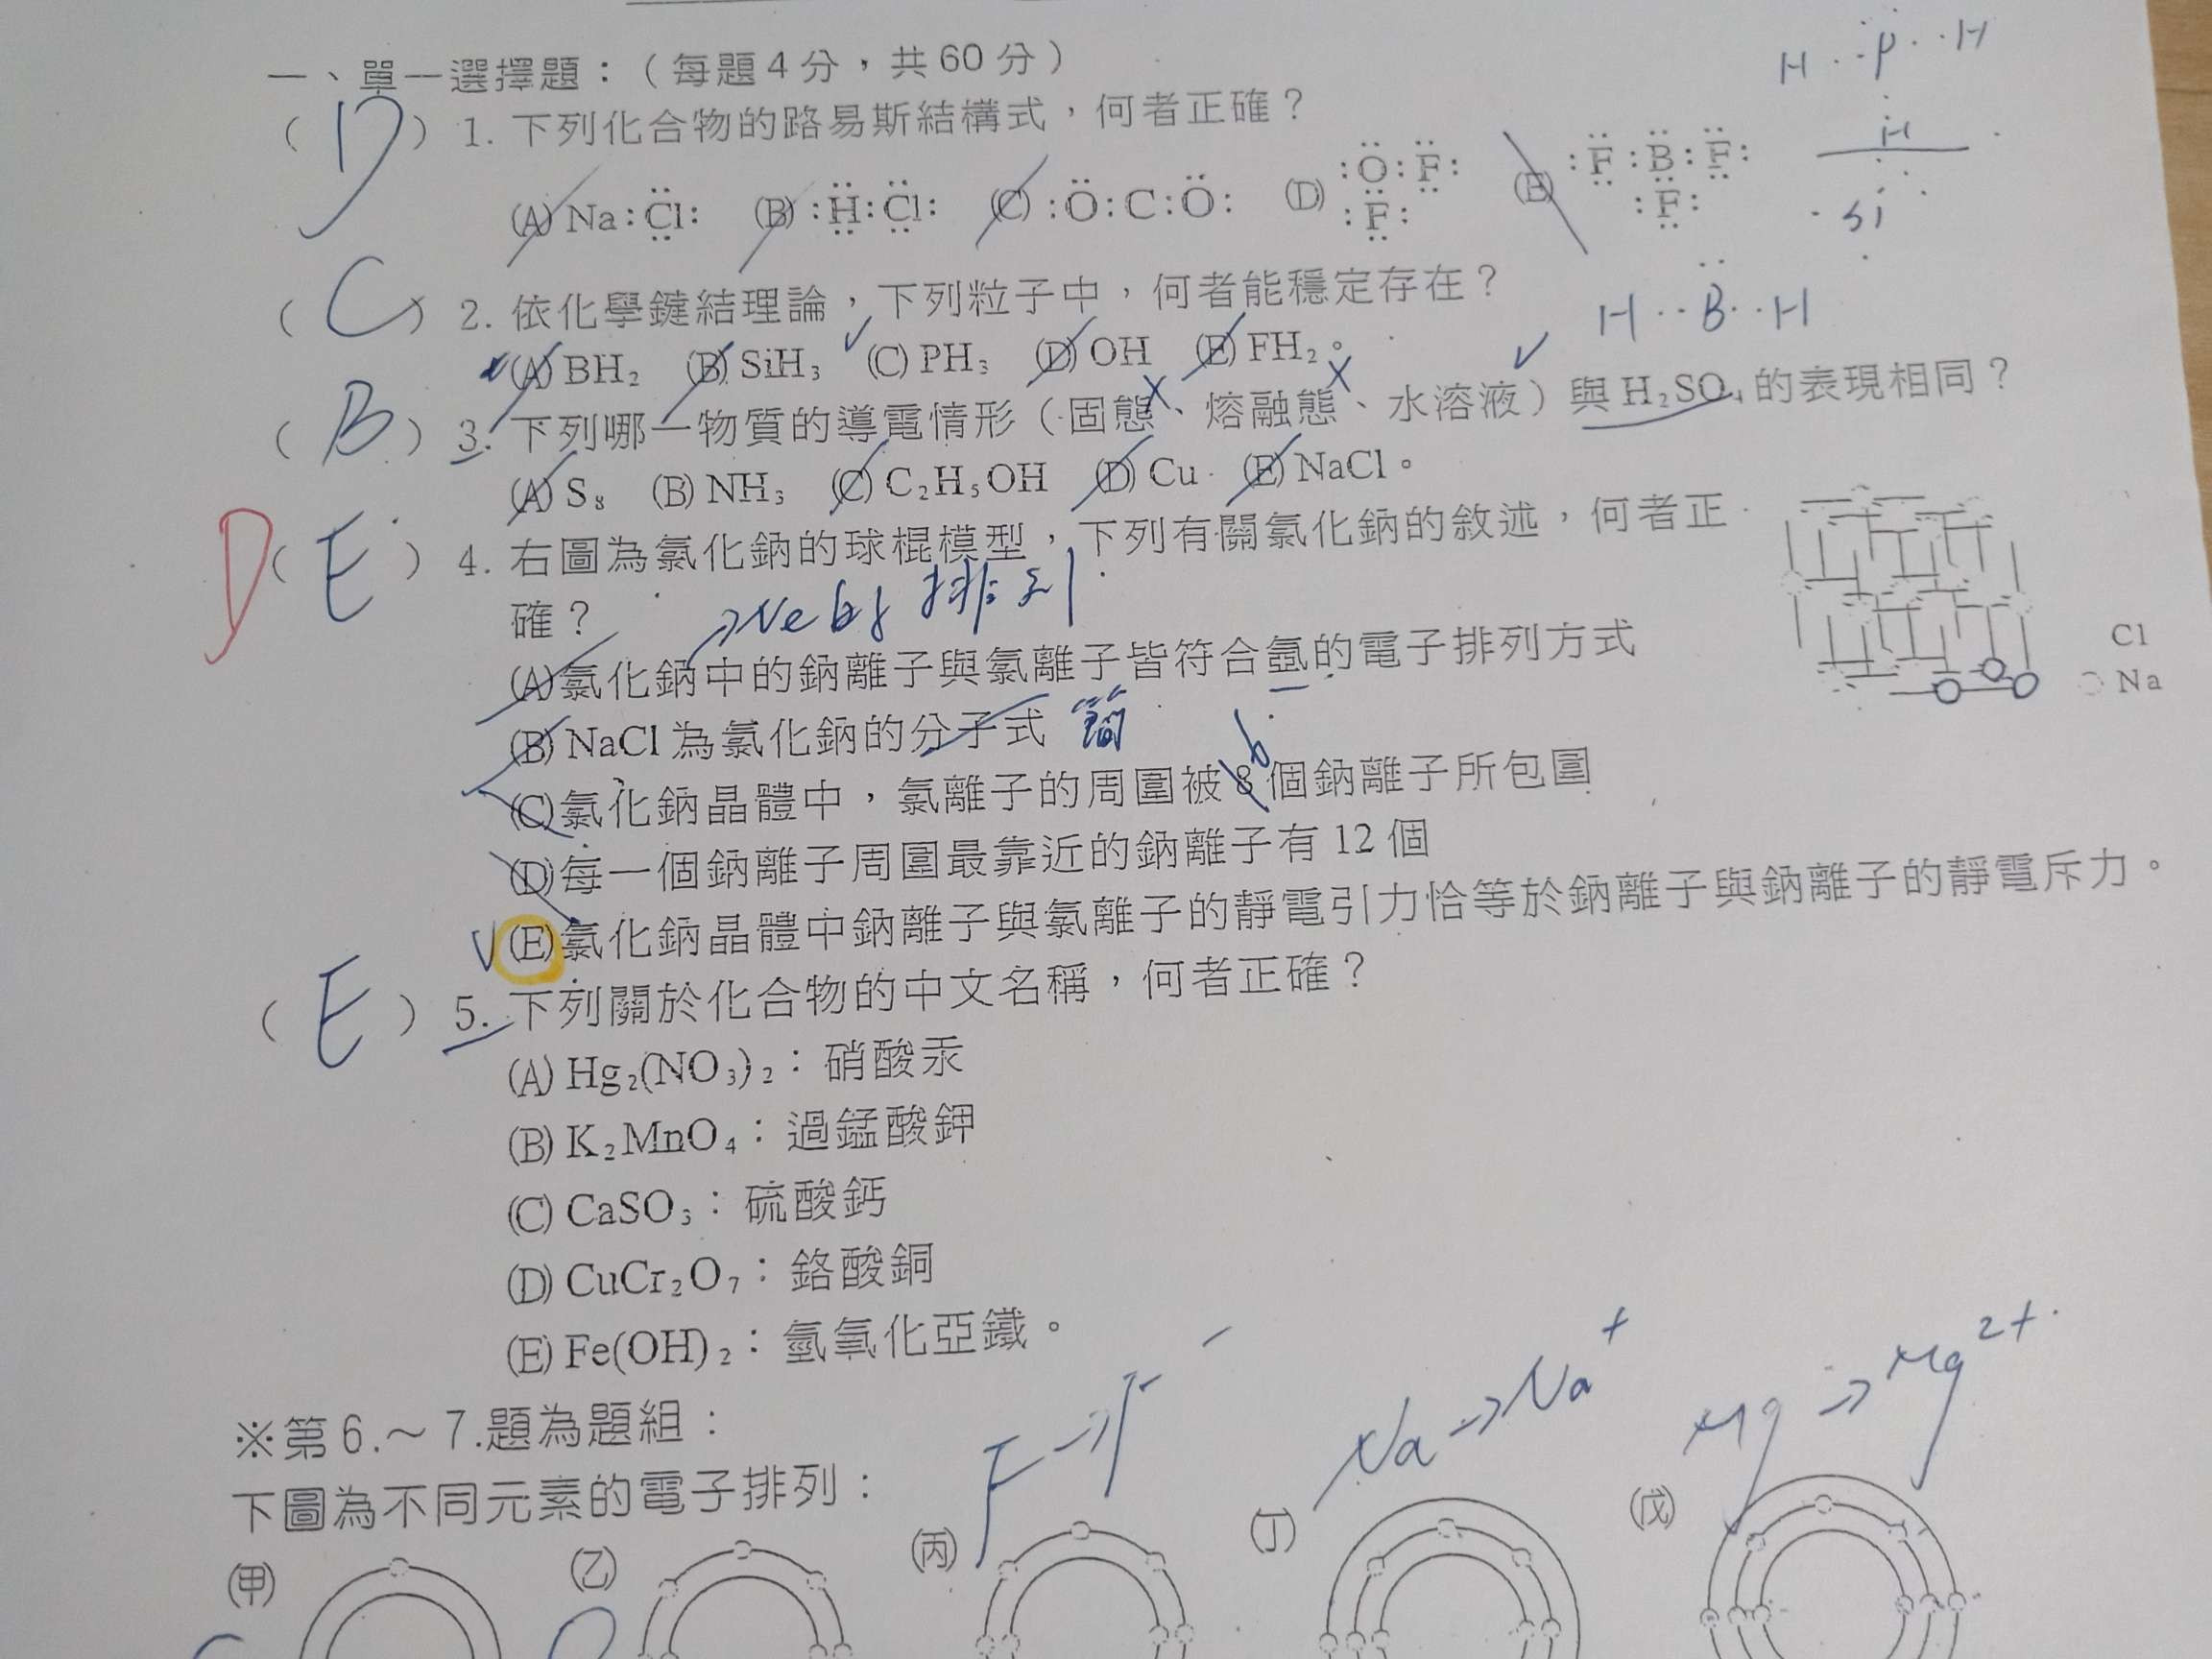 一、單一選擇題：（每題4分，共60分）
H ‥ P ‥ H
H
（ D ）1. 下列化合物的路易斯結構式，何者正確？
(A) Na:Cl: (B) :H:Cl: (C) :O:C:O: (D) :O:F: :F: (E) :F:B:F: :F:
Si
（ C ）2. 依化學鍵結理論，下列粒子中，何者能穩定存在？
H ‥ B ‥ H
(A) BH₂ (B) SiH₃ (C) PH₃ (D) OH (E) FH₂。
（ B ）3. 下列哪一物質的導電情形（固態、熔融態、水溶液）與H₂SO₄的表現相同？
(A) S₈ (B) NH₃ (C) C₂H₅OH (D) Cu (E) NaCl。
D（ E ）4. 右圖為氯化鈉的球棍模型，下列有關氯化鈉的敘述，何者正
確？
→Ne的排列
Cl
Na
(A)氯化鈉中的鈉離子與氯離子皆符合氬的電子排列方式
(B) NaCl為氯化鈉的分子式 簡
6
(C)氯化鈉晶體中，氯離子的周圍被8個鈉離子所包圍
(D)每一個鈉離子周圍最靠近的鈉離子有12個
(E)氯化鈉晶體中鈉離子與氯離子的靜電引力恰等於鈉離子與鈉離子的靜電斥力。
（ E ）5. 下列關於化合物的中文名稱，何者正確？
(A) Hg₂(NO₃)₂：硝酸汞
(B) K₂MnO₄：過錳酸鉀
(C) CaSO₃：硫酸鈣
(D) CuCr₂O₇：鉻酸銅
(E) Fe(OH)₂：氫氧化亞鐵。
※第6.～7.題為題組：
F→F⁻ Na→Na⁺ Mg→Mg²⁺
下圖為不同元素的電子排列：
(甲) (乙) (丙) (丁) (戊)